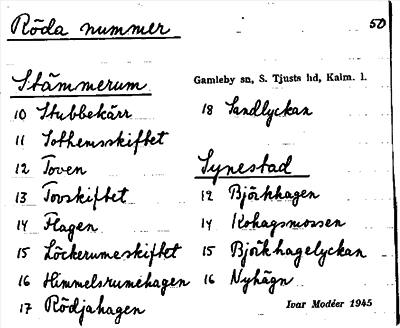 Röda nummer 50
Stämmerum
10 Stubbekärr
11 Sothemsskiftet
12 Toven
13 Tovskiftet
14 Flagen
15 Löckerumeskiftet
16 Himmelsrumehagen
17 Rödjahagen
Gamleby sn, S. Tjusts hd, Kalm. l.
18 Sandlyckan
Synestad
12 Björkhagen
14 Kohagsmossen
15 Björkhagelyckan
16 Nyhägn
Ivar Modéer 1945